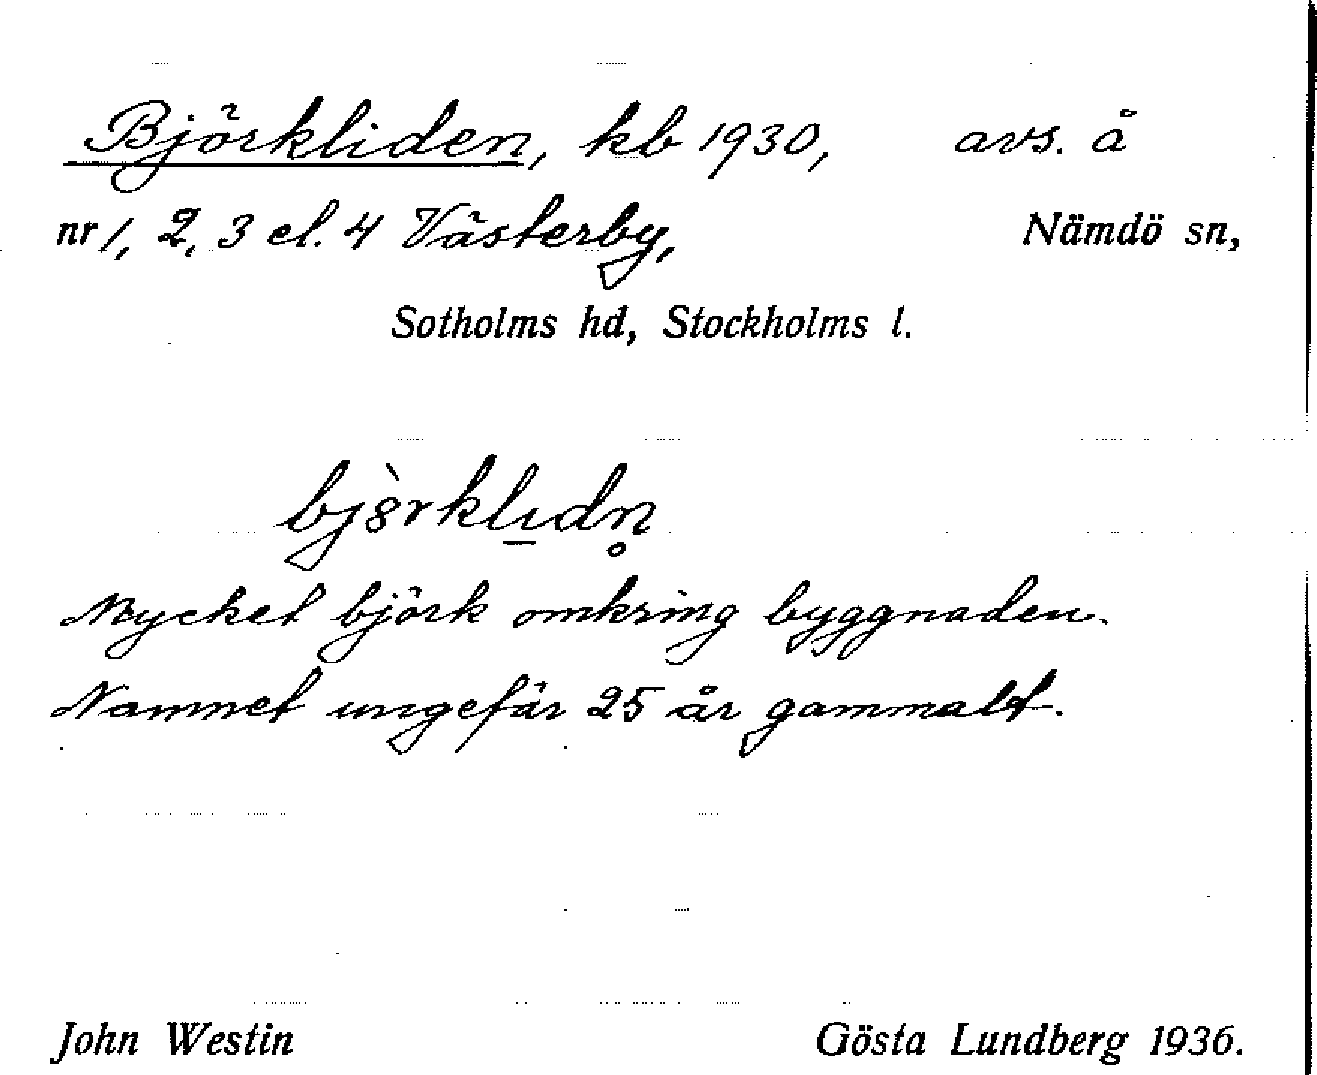 Björkliden, kb 1930, avs. å
nr 1, 2, 3 el. 4 Västerby, Nämdö sn,
Sotholms hd, Stockholms l.
bjò̈rklı̱dn̥
Mycket björk omkring byggnaden.
Namnet ungefär 25 år gammalt.
John Westin Gösta Lundberg 1936.